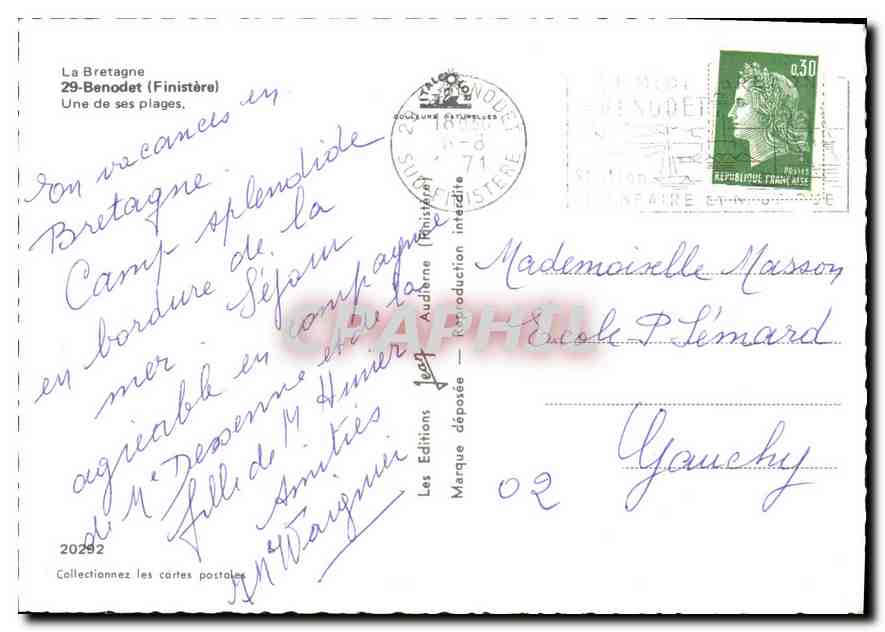 La Bretagne
29-Benodet (Finistère)
Une de ses plages.
En vacances en
Bretagne.
Camp splendide
en bordure de la
mer. Séjour
agréable en compagnie
de Me Dessenne et de la
fille de M
Amitiés
20292
Collectionnez les cartes postales
ITALCOLOR
COULEURS NATURELLES
18H30
6-8
1971
SUD-FINISTERE
BENODET
Station
BALNEAIRE ET NAUTIQUE
0,30
POSTES
REPUBLIQUE FRANÇAISE
Les Editions Jean Audierne (Finistère)
Marque déposée — Reproduction interdite
CPAPHIL
Mademoiselle Masson
Ecole P Sémard
Gauchy
02